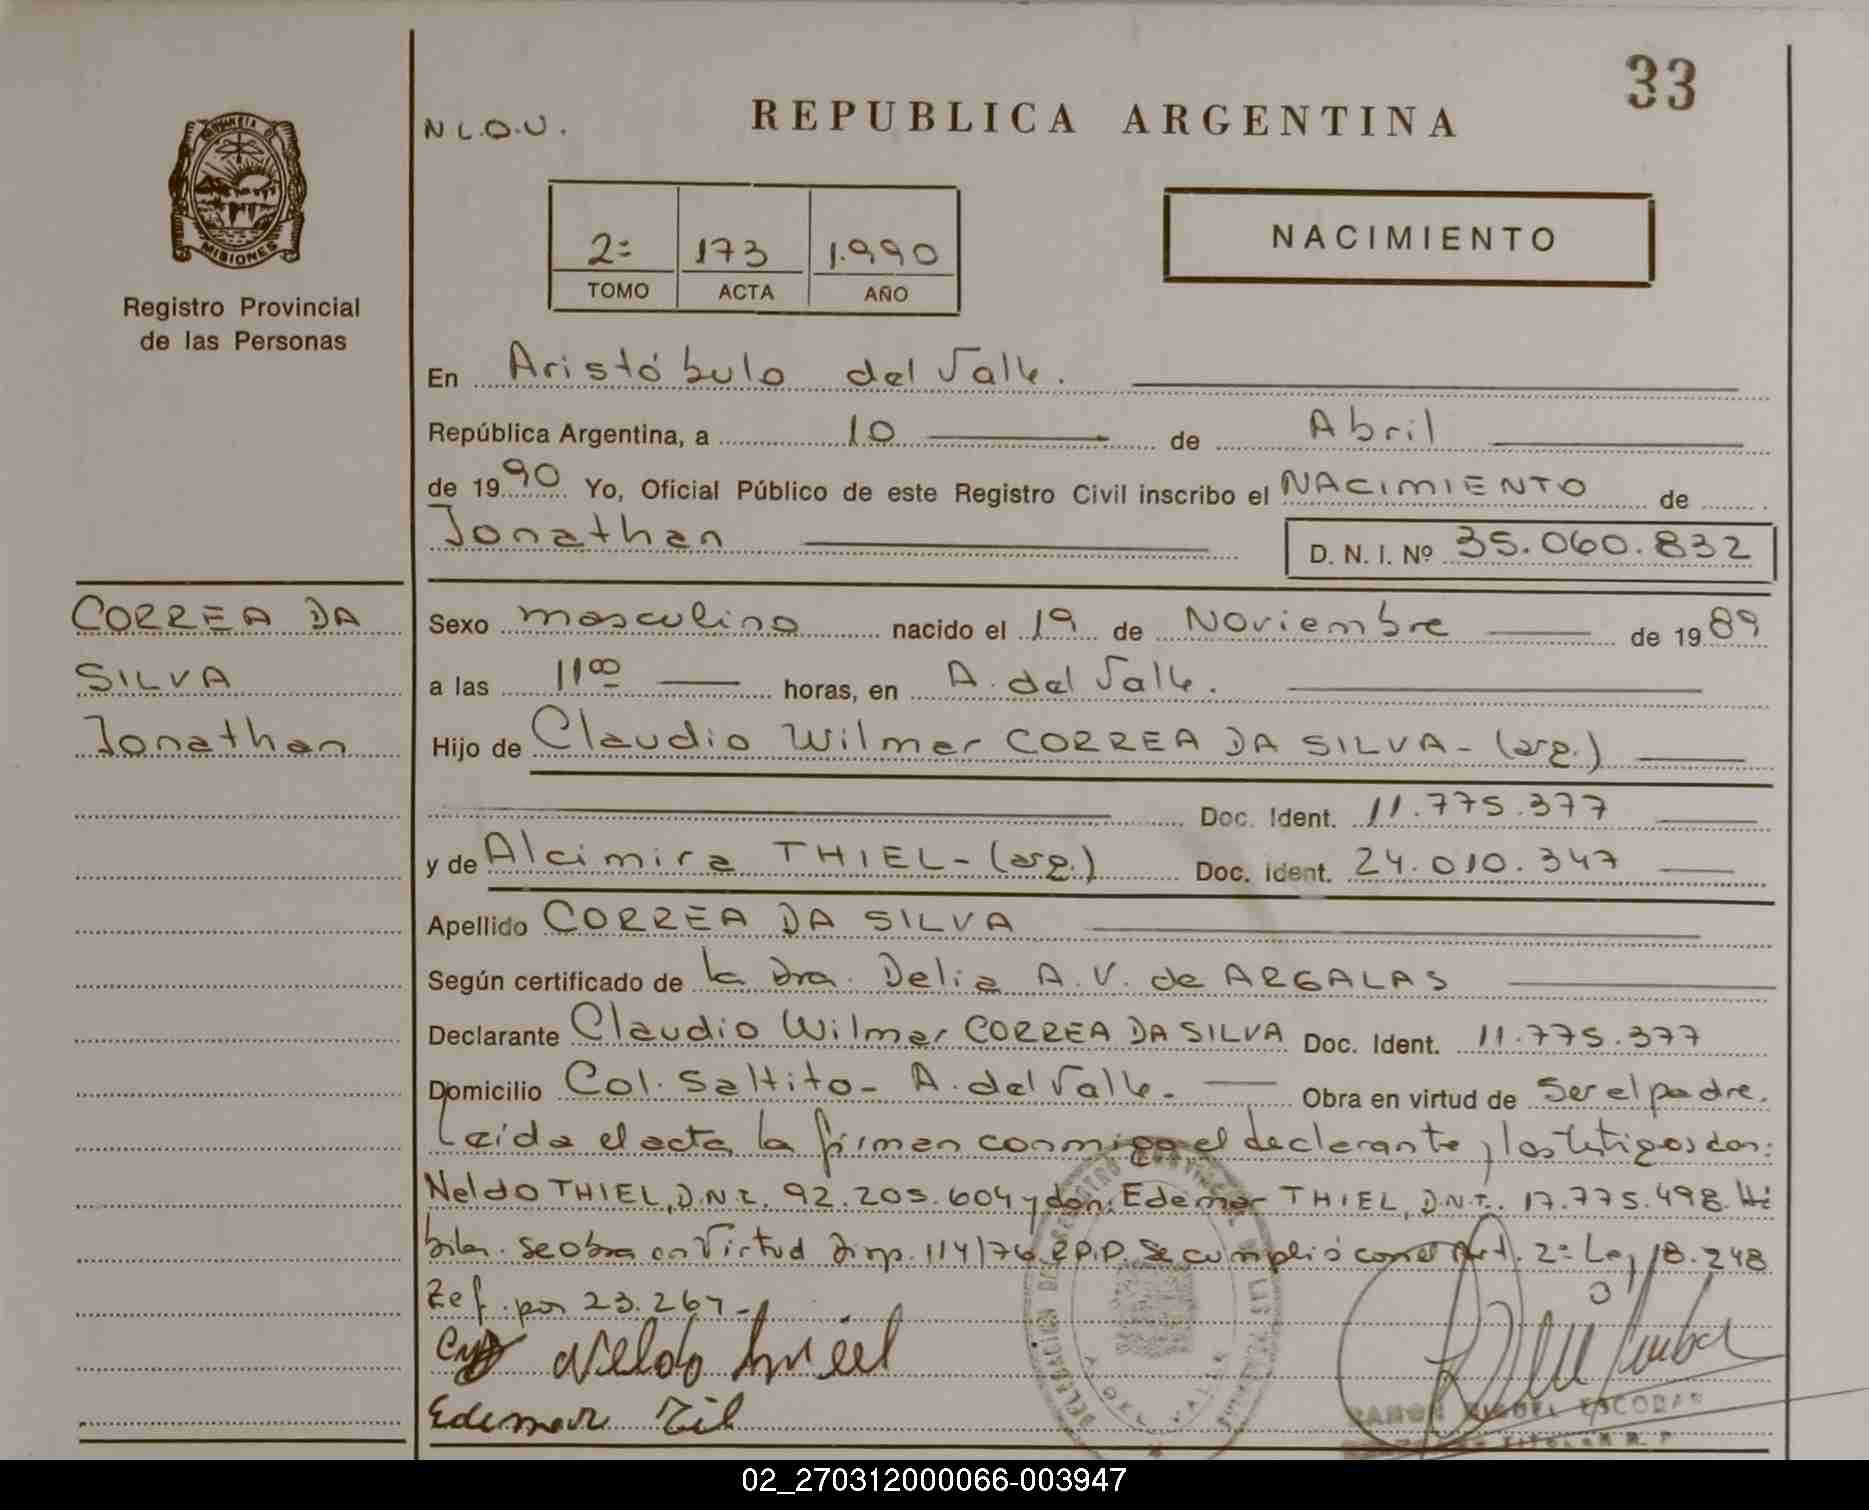 33
N L.O.U.
REPUBLICA ARGENTINA
PROVINCIA DE
MISIONES
Registro Provincial
de las Personas
2= 173 1.990
TOMO ACTA AÑO
NACIMIENTO
En Aristóbulo del Valle.
República Argentina, a 10 de Abril
de 1990 Yo, Oficial Público de este Registro Civil inscribo el NACIMIENTO de
Jonathan D. N. I. Nº 35.060.832
CORREA DA
SILVA
Jonathan
Sexo masculino nacido el 19 de Noviembre de 1989
a las 11 00 horas, en A. del Valle.
Hijo de Claudio Wilmar CORREA DA SILVA - (arg.)
Doc. Ident. 11.775.377
y de Alcimira THIEL - (arg.) Doc. Ident. 24.010.347
Apellido CORREA DA SILVA
Según certificado de la Dra. Delia A. V. de ARGALAS
Declarante Claudio Wilmar CORREA DA SILVA Doc. Ident. 11.775.377
Domicilio Col. Saltito - A. del Valle. Obra en virtud de Ser el padre.
Leida el acta la firman conmigo el declarante y los testigos don:
Neldo THIEL, D.N.I. 92.205.604 y don: Edemar THIEL, D.N.I. 17.775.498.
Se obra en Virtud Disp. 114/76 R.P.P. Se cumplió con el Art. 2= Ley 18.248
Ref. por 23.264 -
Neldo Thiel
Edemar Til
DELEGACIÓN DEL REGISTRO PROVINCIAL DE LAS PERSONAS
A. DEL VALLE
RAMON MIGUEL ESCOBAR
02_270312000066-003947